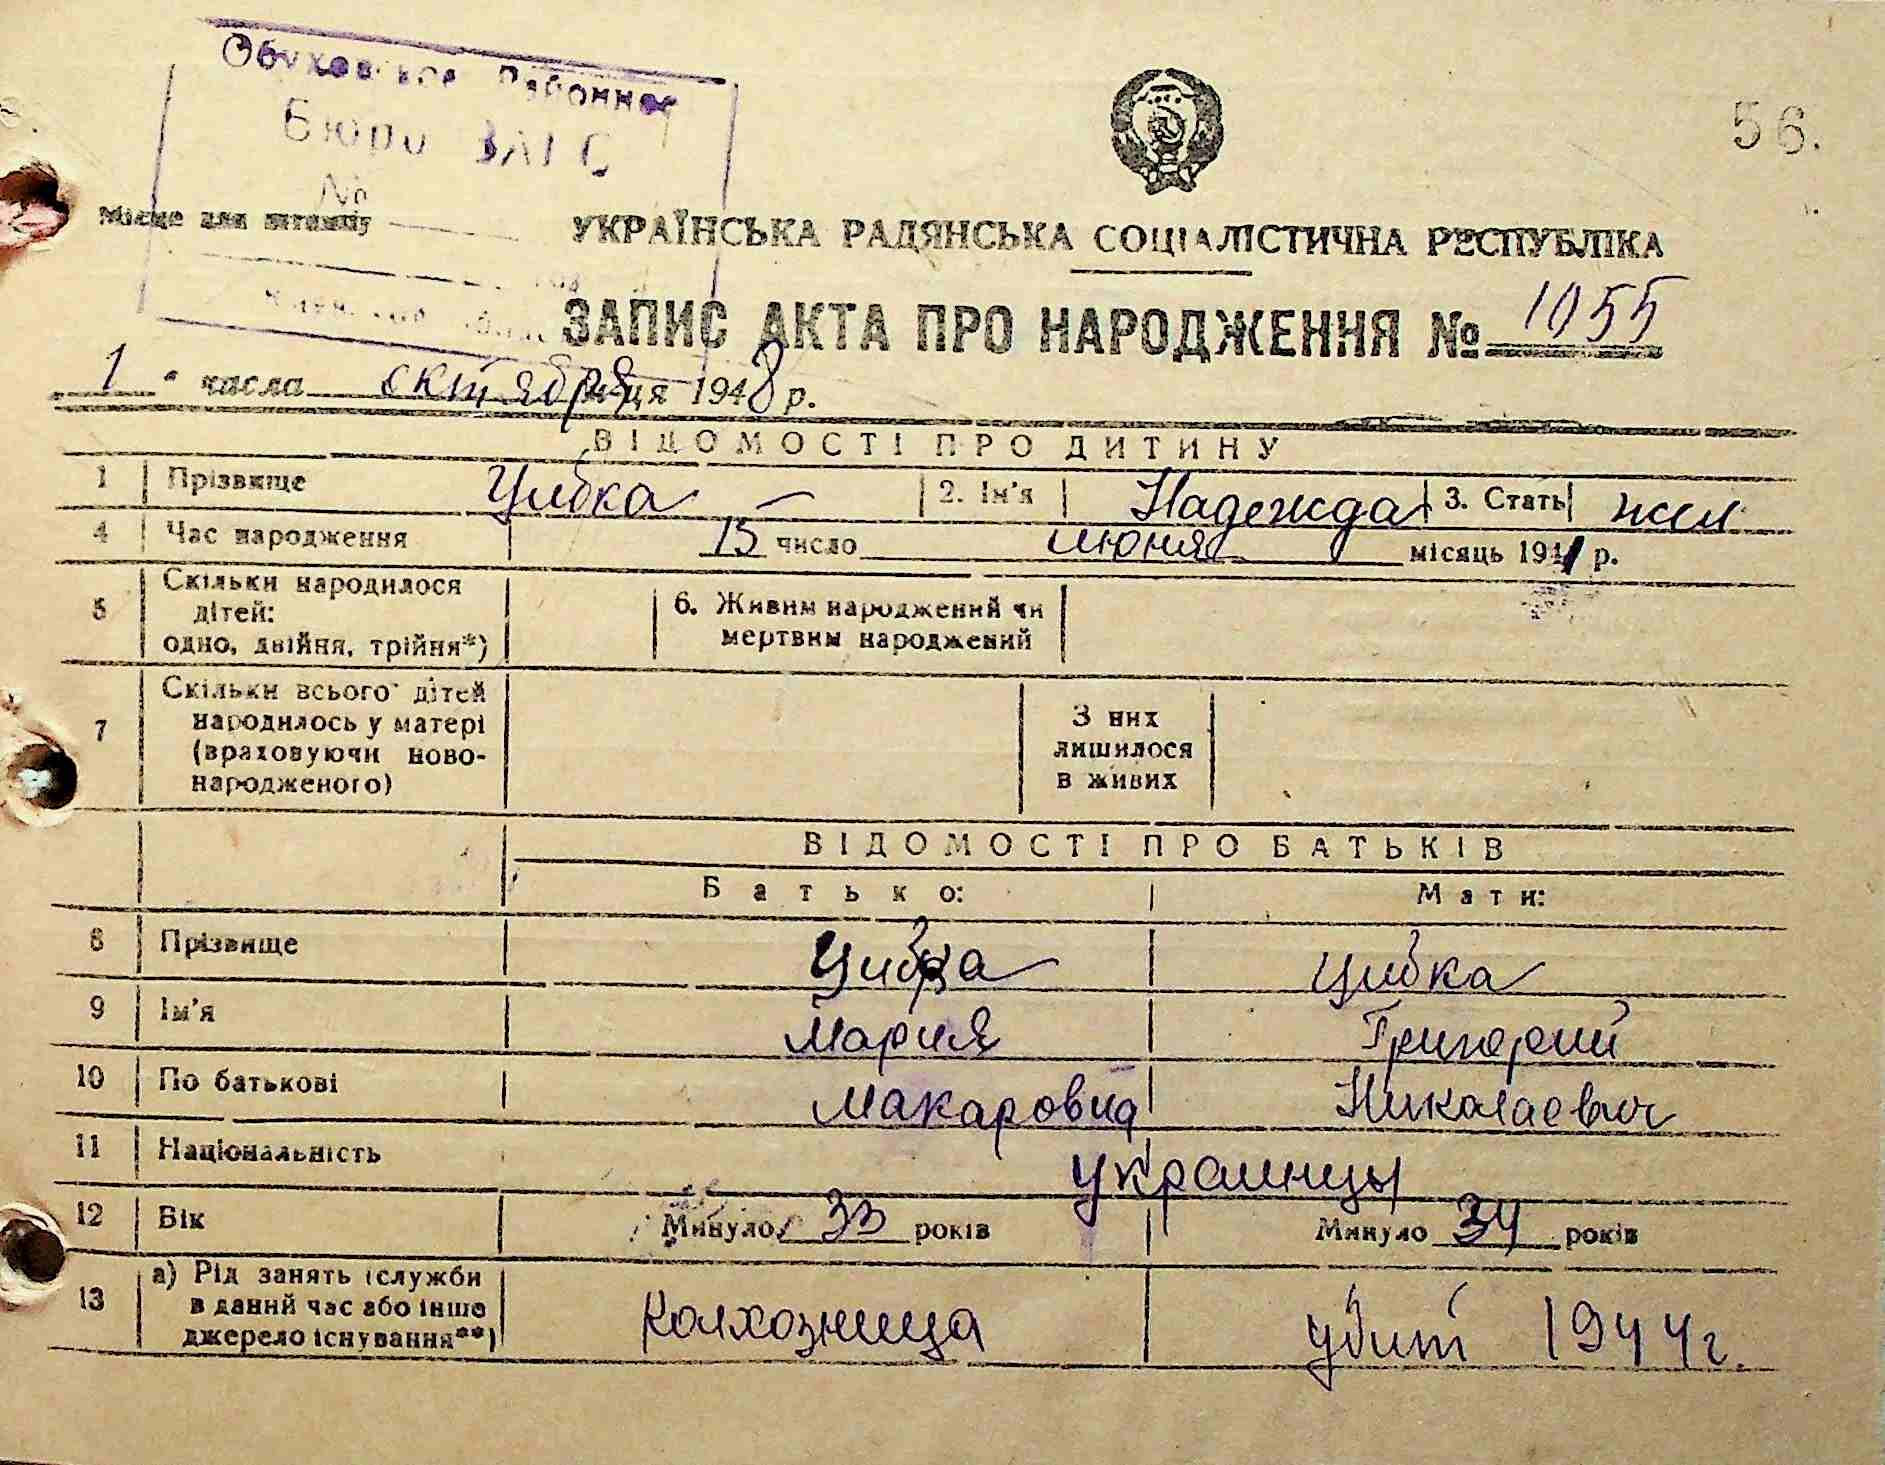 Обуховское Районное
56.
Бюро ЗАГС
№
Місце для штампу
УКРАЇНСЬКА РАДЯНСЬКА СОЦІАЛІСТИЧНА РЕСПУБЛІКА
ЗАПИС АКТА ПРО НАРОДЖЕННЯ № 1055
1 " числа октября ця 1948 р.
ВІДОМОСТІ ПРО ДИТИНУ
1 Прізвище Цибка 2. Ім'я Надежда 3. Стать жен
4 Час народження 15 число июня місяць 1941 р.
5 Скільки народилося
дітей:
одно, двійня, трійня*)
6. Живим народжений чи
мертвим народжений
7 Скільки всього дітей
народилось у матері
(враховуючи ново-
народженого)
З них
лишилося
в живих
ВІДОМОСТІ ПРО БАТЬКІВ
Батько: Мати:
8 Прізвище Цибка Цибка
9 Ім'я Мария Григорий
10 По батькові Макаровна Николаевич
11 Національність украинцы
12 Вік Минуло 33 років Минуло 34 років
13 а) Рід занять (служби
в даний час або інше
джерело існування**)
Колхозница убит 1944г.